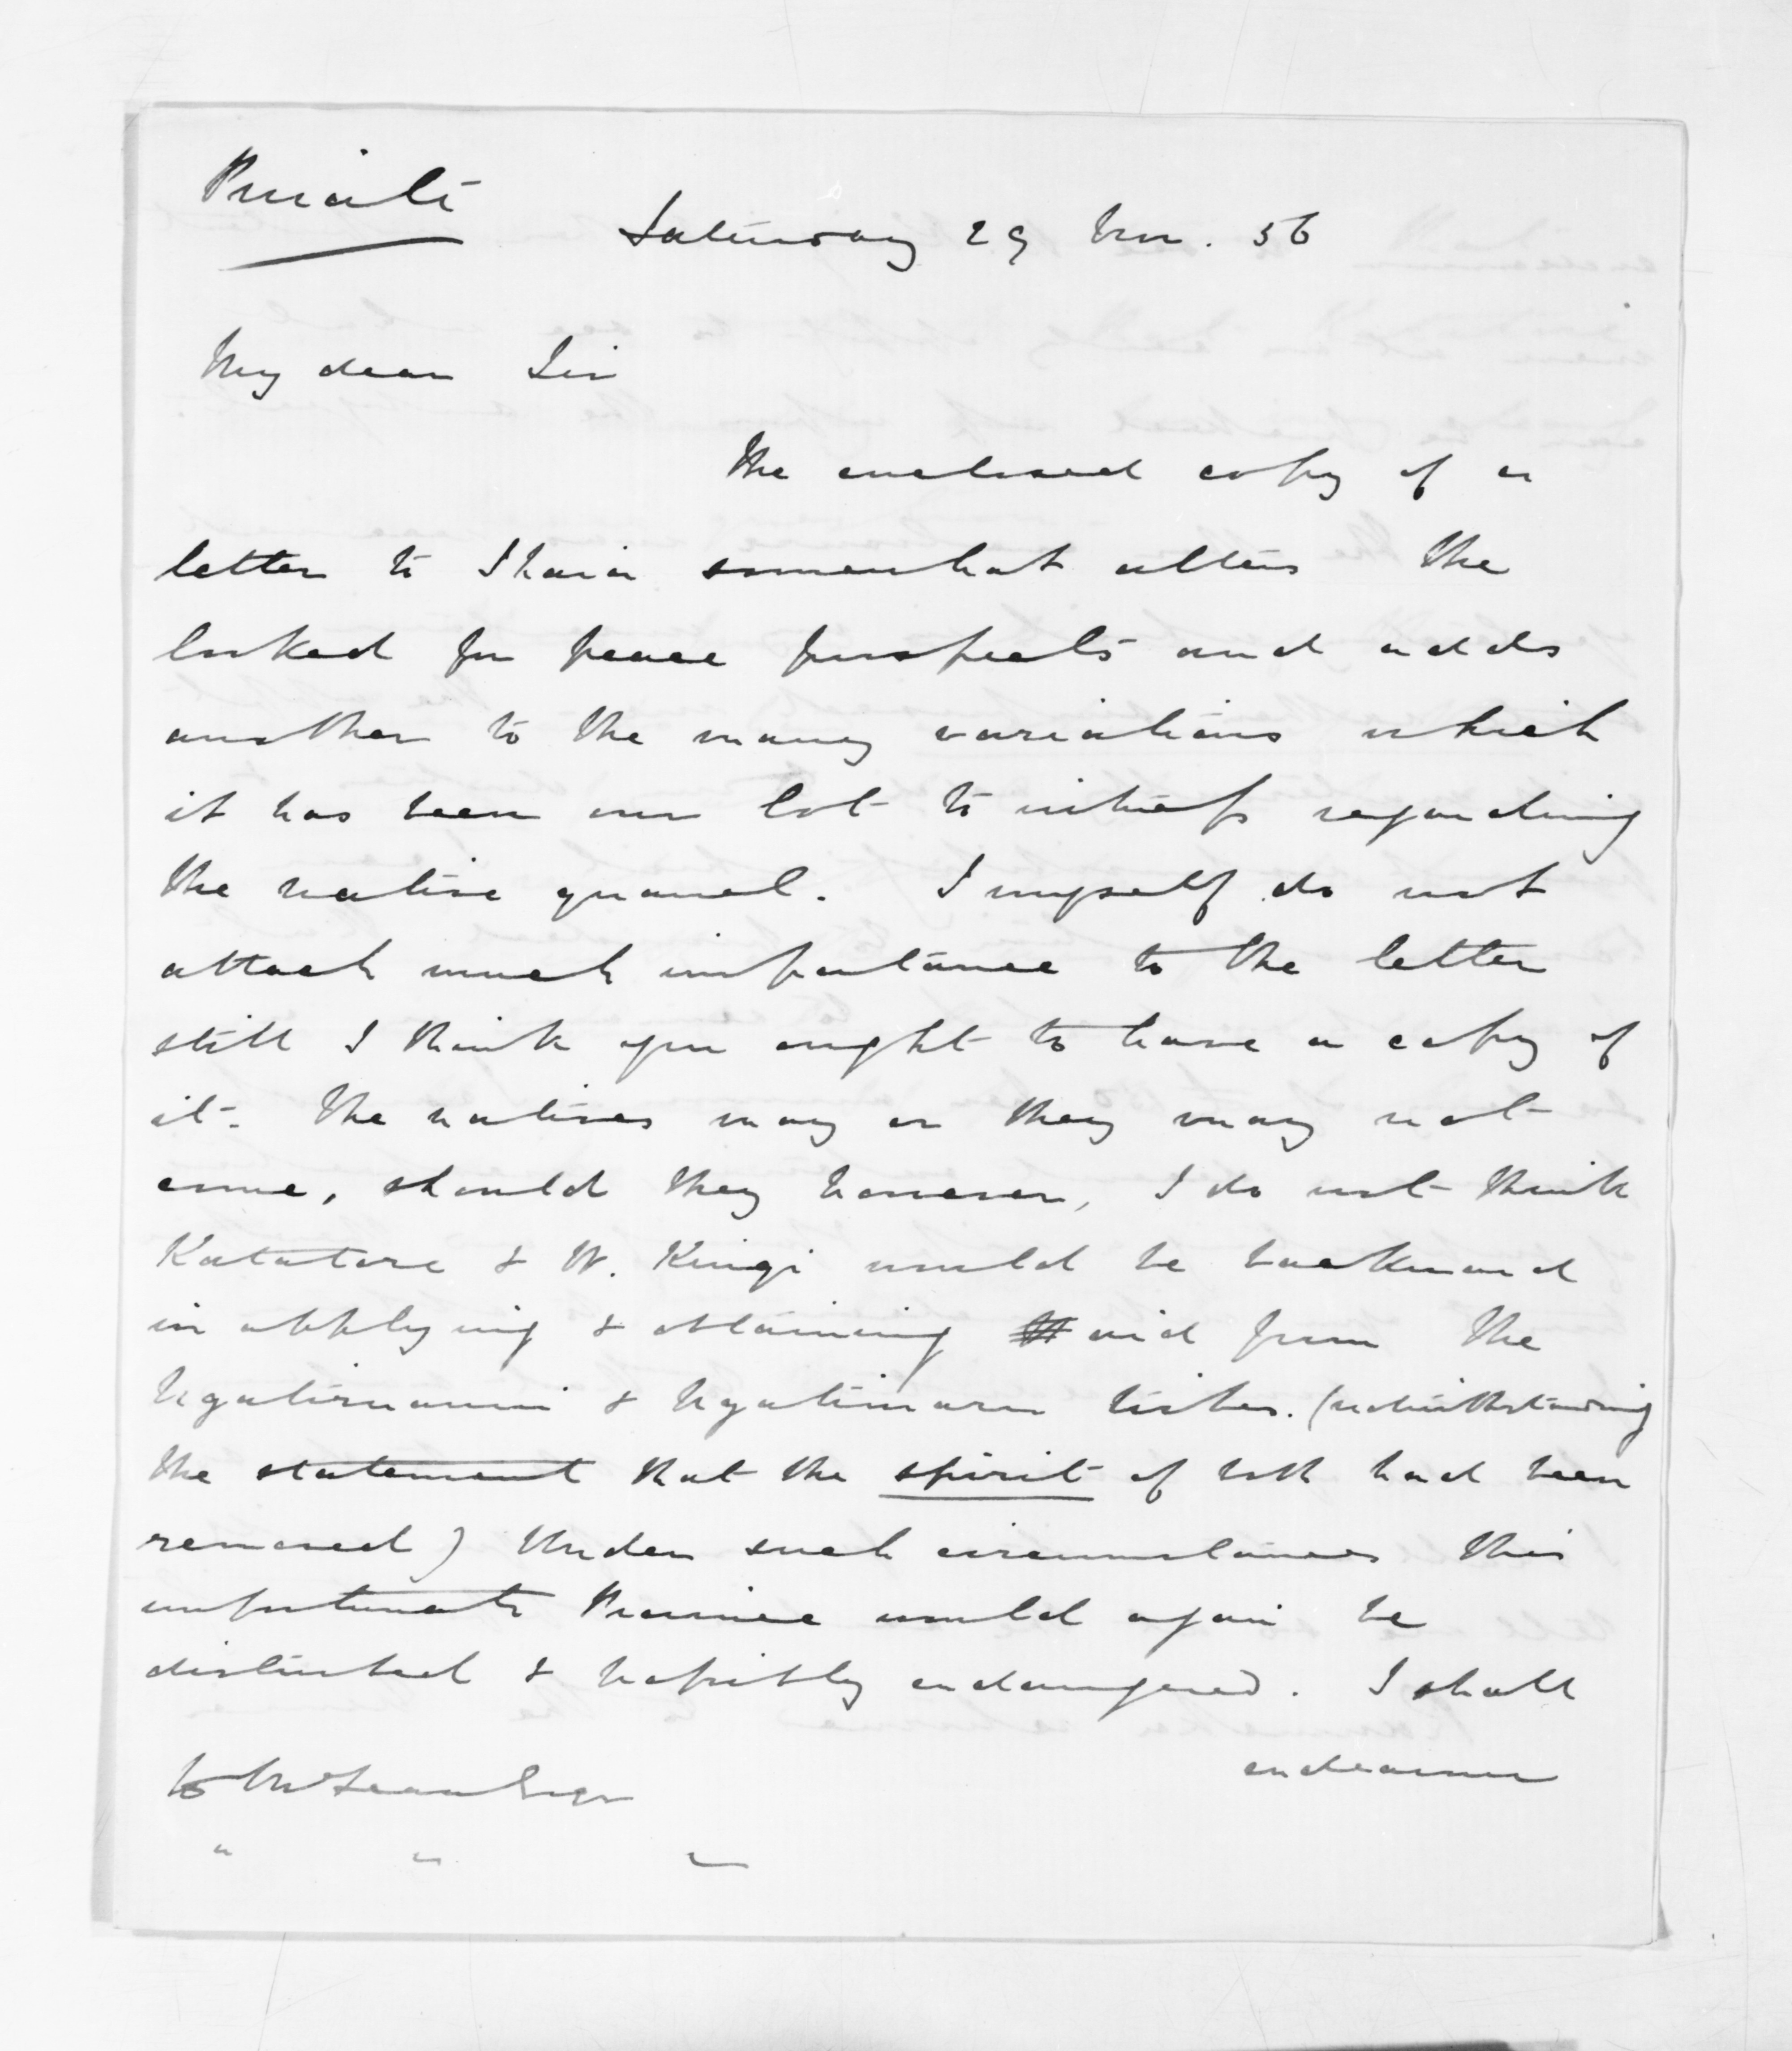 Private
Saturday 29 Nov. 56
My dear Sir
The enclosed copy of a
letter to Ihaia somewhat alters the
looked for peace prospects and adds
another to the many variations which
it has been our lot to witness regarding
the native quarrel. I myself do not
attach much importance to the letter
still I think you ought to have a copy of
it. The natives may or they may not
come, should they however, I do not think
Katatore & W. Kingi would be backward
in applying & obtaining aid from the
Ngatiruanui & Ngatimaru tribes. (notwithstanding
the statement that the spirit of both had been
removed) Under such circumstances this
unfortunate Province would again be
disturbed & possibly endangered. I shall
endeavour
To McLean Esqr
" " "